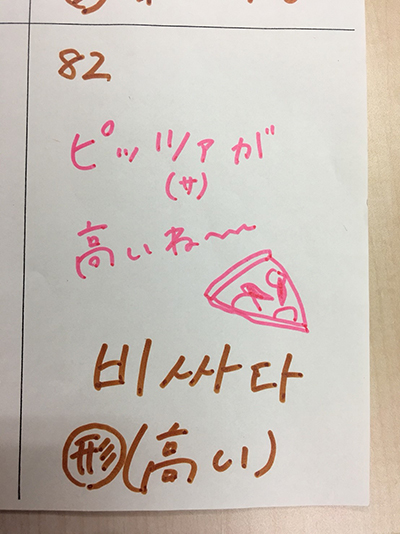 82
ピッツァが
(サ)
高いね〜〜
비싸다
形(高い)